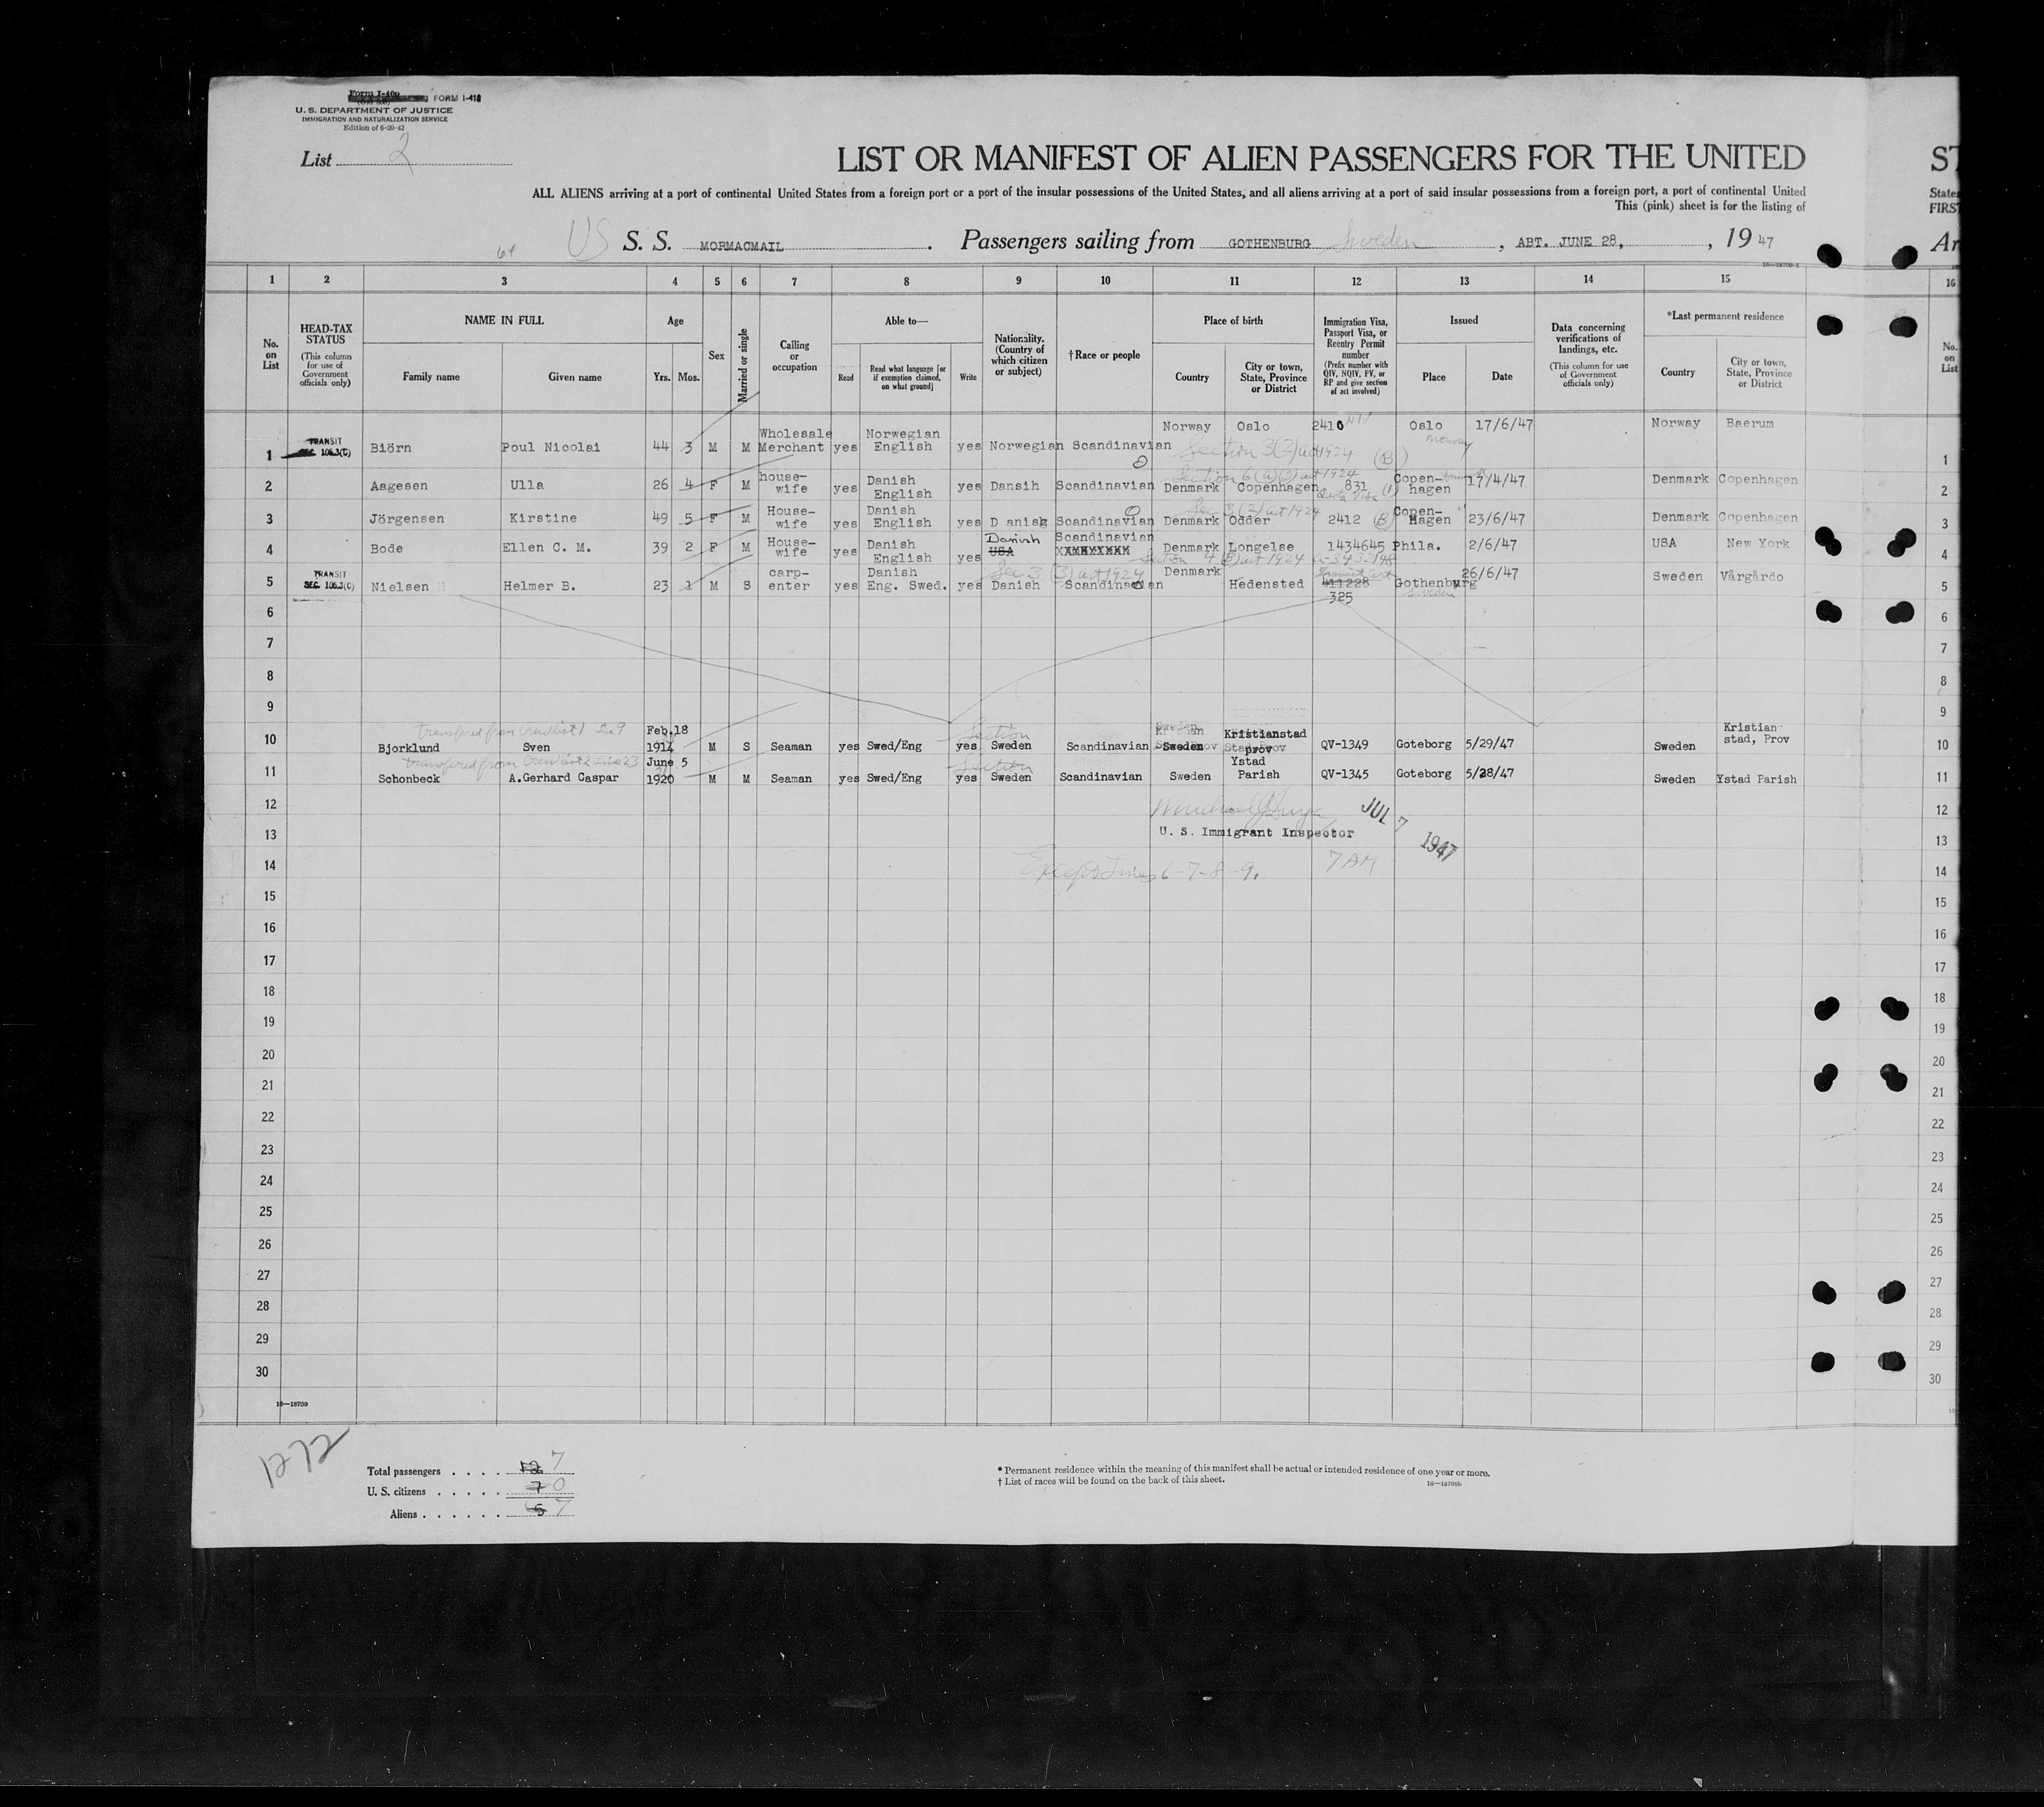 Form I-400 FORM I-418
U. S. DEPARTMENT OF JUSTICE
IMMIGRATION AND NATURALIZATION SERVICE
Edition of 6-20-42
List 2
LIST OR MANIFEST OF ALIEN PASSENGERS FOR THE UNITED ST
ALL ALIENS arriving at a port of continental United States from a foreign port or a port of the insular possessions of the United States, and all aliens arriving at a port of said insular possessions from a foreign port, a port of continental United States
This (pink) sheet is for the listing of FIRST
64 US S. S. MORMACMAIL. Passengers sailing from GOTHENBURG Sweden, ABT. JUNE 28, , 19 47 Ar
1 2 3 4 5 6 7 8 9 10 11 12 13 14 15 16
No. on List
HEAD-TAX STATUS
(This column for use of Government officials only)
NAME IN FULL
Family name
Given name
Age
Yrs. Mos.
Sex
Married or single
Calling or occupation
Able to—
Read
Read what language [or if exemption claimed, on what ground]
Write
Nationality. (Country of which citizen or subject)
†Race or people
Place of birth
Country
City or town, State, Province or District
Immigration Visa, Passport Visa, or Reentry Permit number
(Prefix number with QIV, NQIV, PV, or RP and give section of act involved)
Issued
Place
Date
Data concerning verifications of landings, etc.
(This column for use of Government officials only)
*Last permanent residence
Country
City or town, State, Province or District
No. on List
1 TRANSIT SEC. 106.3(C) Biörn Poul Nicolai 44 3 M M Wholesale Merchant yes Norwegian English yes Norwegian Scandinavian Norway Oslo 2410 NIV Oslo Norway 17/6/47 Norway Baerum 1
Section 3(2) act 1924 (B)
Section 6(a)(3) act 1924
2 Aagesen Ulla 26 4 F M house-wife yes Danish English yes Dansih Scandinavian Denmark Copenhagen 831 Quota Visa (1) Copen-hagen 17/4/47 Denmark Copenhagen 2
Sec 3(2) act 1924
3 Jörgensen Kirstine 49 5 F M House-wife yes Danish English yes D anish Scandinavian Denmark Odder 2412 (B) Copen-Hagen 23/6/47 Denmark Copenhagen 3
4 Bode Ellen C. M. 39 2 F M House-wife yes Danish English yes Danish USA Scandinavian Denmark Longelse 1434645 Phila. 2/6/47 USA New York 4
Section 4 (B) act 1924
Sec 3 (3) act 1924
5 TRANSIT SEC. 106.3(C) Nielsen Helmer B. 23 1 M S carp-enter yes Danish Eng. Swed. yes Danish Scandinavian Denmark Hedensted 411228 325 Gothenburg Sweden 26/6/47 Sweden Vårgårdo 5
6 6
7 7
8 8
9 9
transfered from crewlist 1 line 9
10 Bjorklund Sven Feb.18 1914 M S Seaman yes Swed/Eng yes Sweden Scandinavian Sweden Kristianstad prov QV-1349 Goteborg 5/29/47 Sweden Kristian stad, Prov 10
Section
transfered from Crewlist 2 line 23
11 Schonbeck A.Gerhard Caspar June 5 1920 M M Seaman yes Swed/Eng yes Sweden Scandinavian Sweden Ystad Parish QV-1345 Goteborg 5/28/47 Sweden Ystad Parish 11
Section
12 12
JUL 7 1947
13 U. S. Immigrant Inspector 13
14 Except Lines 6-7-8-9. 7 AM 14
15 15
16 16
17 17
18 18
19 19
20 20
21 21
22 22
23 23
24 24
25 25
26 26
27 27
28 28
29 29
30 30
16—18709
1272
Total passengers . . . . 12 7
U. S. citizens . . . . . 7 0
Aliens . . . . . . 5 7
* Permanent residence within the meaning of this manifest shall be actual or intended residence of one year or more.
† List of races will be found on the back of this sheet.
16—18709b